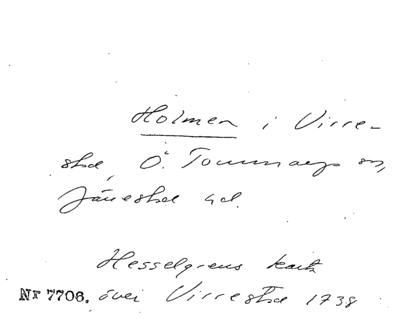 Holmen i Virre-
stad, Ö. Tommarps sn,
Järrestad hd.
Hesselgrens karta
Nr 7706. över Virrestad 1738